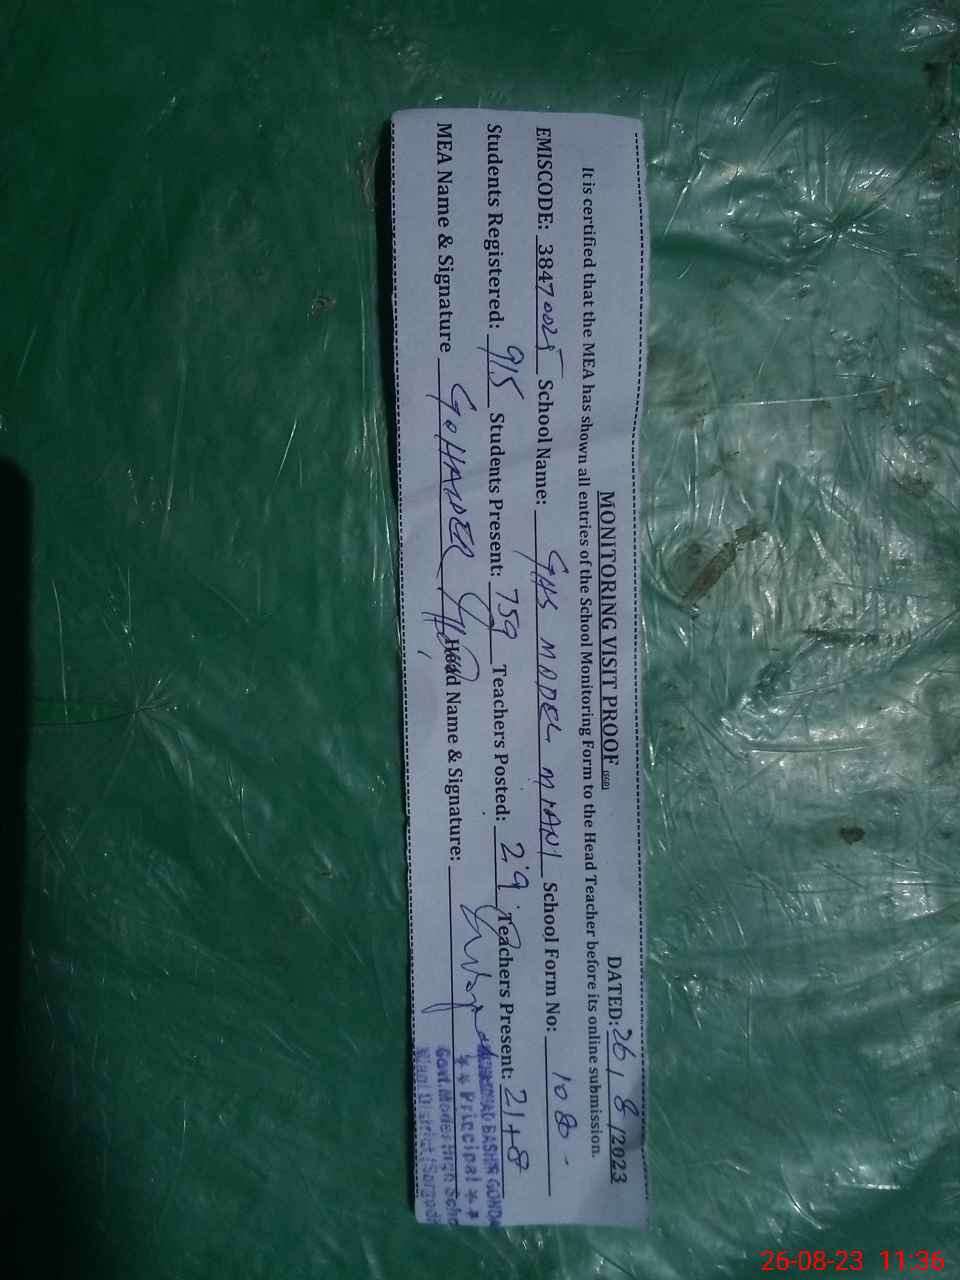 MONITORING VISIT PROOF
DATED: 26/8/2023
It is certified that the MEA has shown all entries of the School Monitoring Form to the Head Teacher before its online submission.
EMISCODE: 38470025 School Name: GHS MODEL MIANI School Form No: 1080-
Students Registered: 915 Students Present: 759 Teachers Posted: 29 Teachers Present: 21+8
MEA Name & Signature HAIDER Head Name & Signature:
BASHIR
** Principal **
Govt. Model High
Miani District
26-08-23 11:36